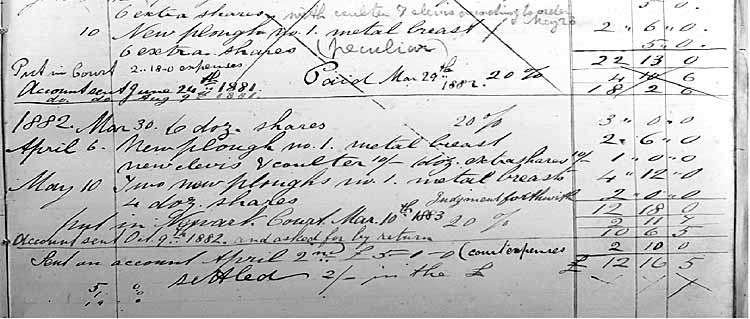 6 extra shares with coulter & clevis according to order May 26 5 " 0 "
10 New plough no. 1. metal breast 2 " 6 " 0 "
6 extra shares (peculiar) 5 " 0 "
22 13 0
Put in Court 2..18.0 expenses Paid Mar 29th 1882. 20 % 4 10 6
Account sent June 24th 1881. 18 2 6
do do Aug 9th 1881
1882. Mar 30. 6 doz. shares 20 % 3 " 0 " 0
April 6. New plough no. 1. metal breast 2 " 6 " 0
new clevis & coulter 10/- doz. extra shares 10/- 1 " 0 " 0
May 10 Two new ploughs no. 1. metal breasts 4 " 12 " 0
4 doz. shares Judgment forthwith 2 " 0 " 0
12 18 0
put in Newark Court Mar. 10th 1883 20 % 2 11 7
Account sent Oct. 9th 1882. and asked for by return 10 6 5
Sent an account April 2nd £5-0-0 (court expenses 2 10 0
settled 2/- in the £ £ 12 16 5